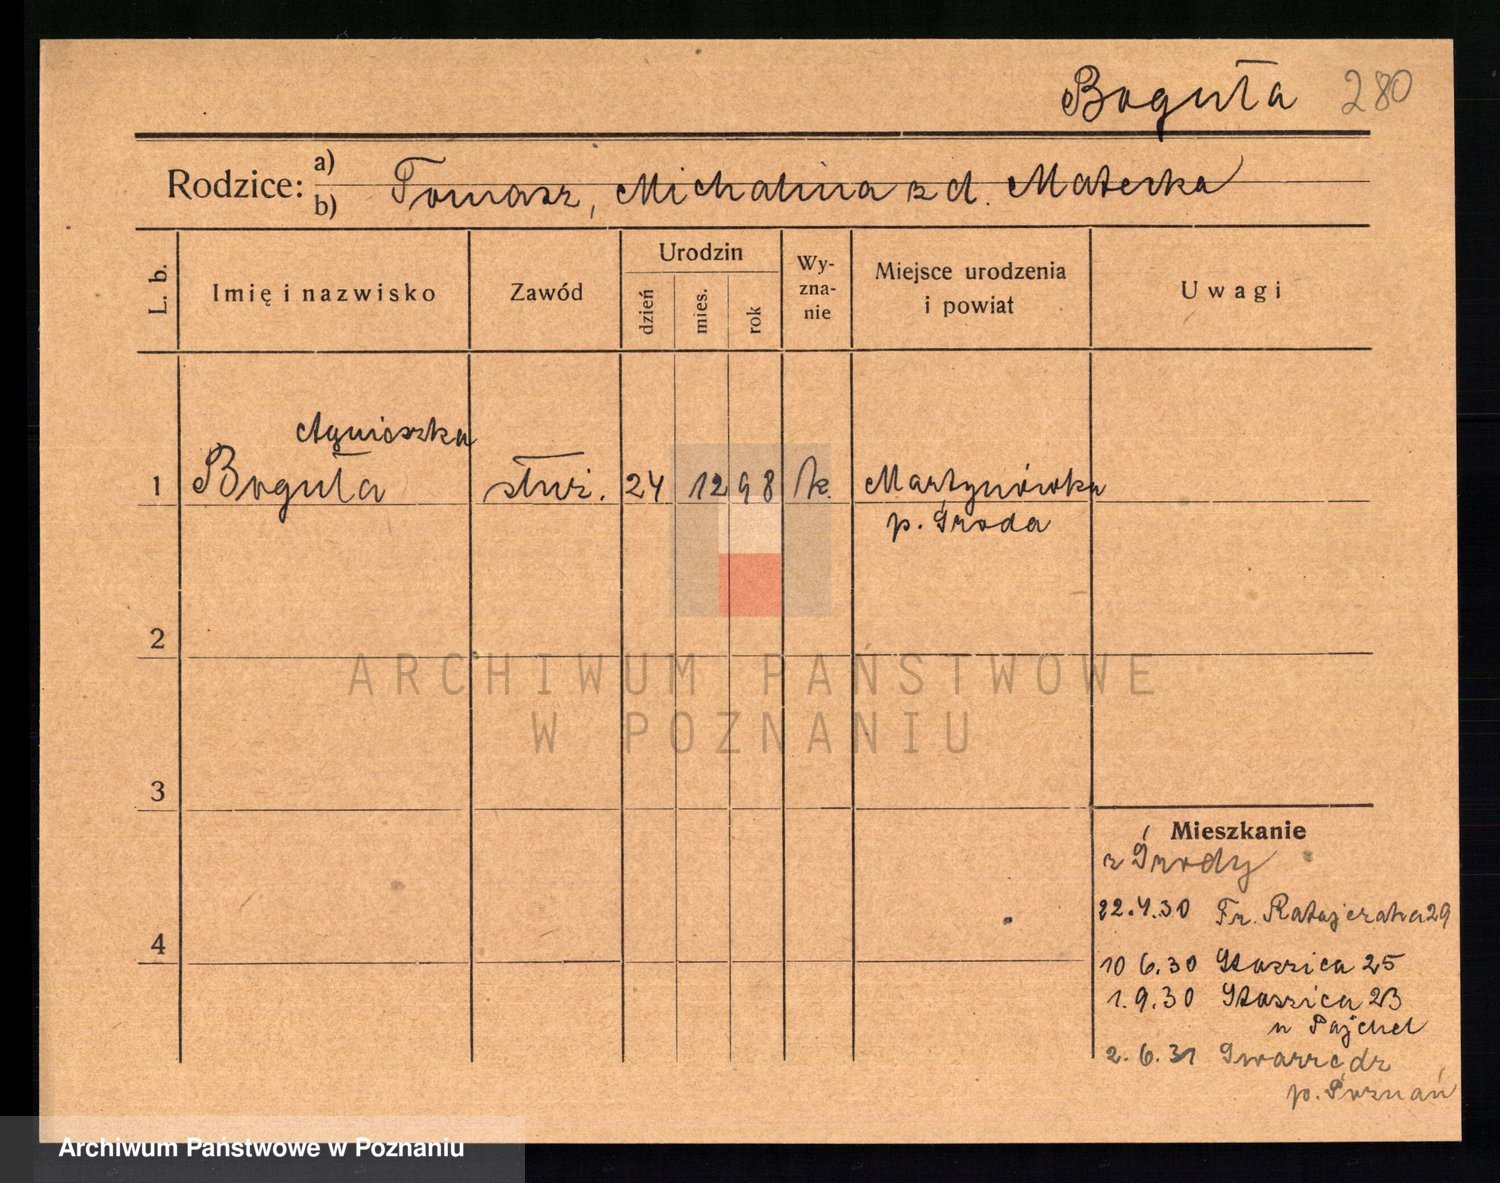 Boguła 280
Rodzice: a) b) Tomasz, Michalina z d. Materka
L. b. Imię i nazwisko Zawód Urodzin dzień mies. rok Wy-zna-nie Miejsce urodzenia i powiat Uwagi
Agnieszka
1 Boguła służ. 24 12 98 k. Martynówka
p. Środa
2
ARCHIWUM PAŃSTWOWE
W POZNANIU
3
Mieszkanie
z Środy
22.4.30 Fr. Ratajczaka 29
4
10 6.30 Staszica 25
1.9.30 Staszica 23
u Pajchel
2.6.31 Swarzędz
p. Poznań
Archiwum Państwowe w Poznaniu